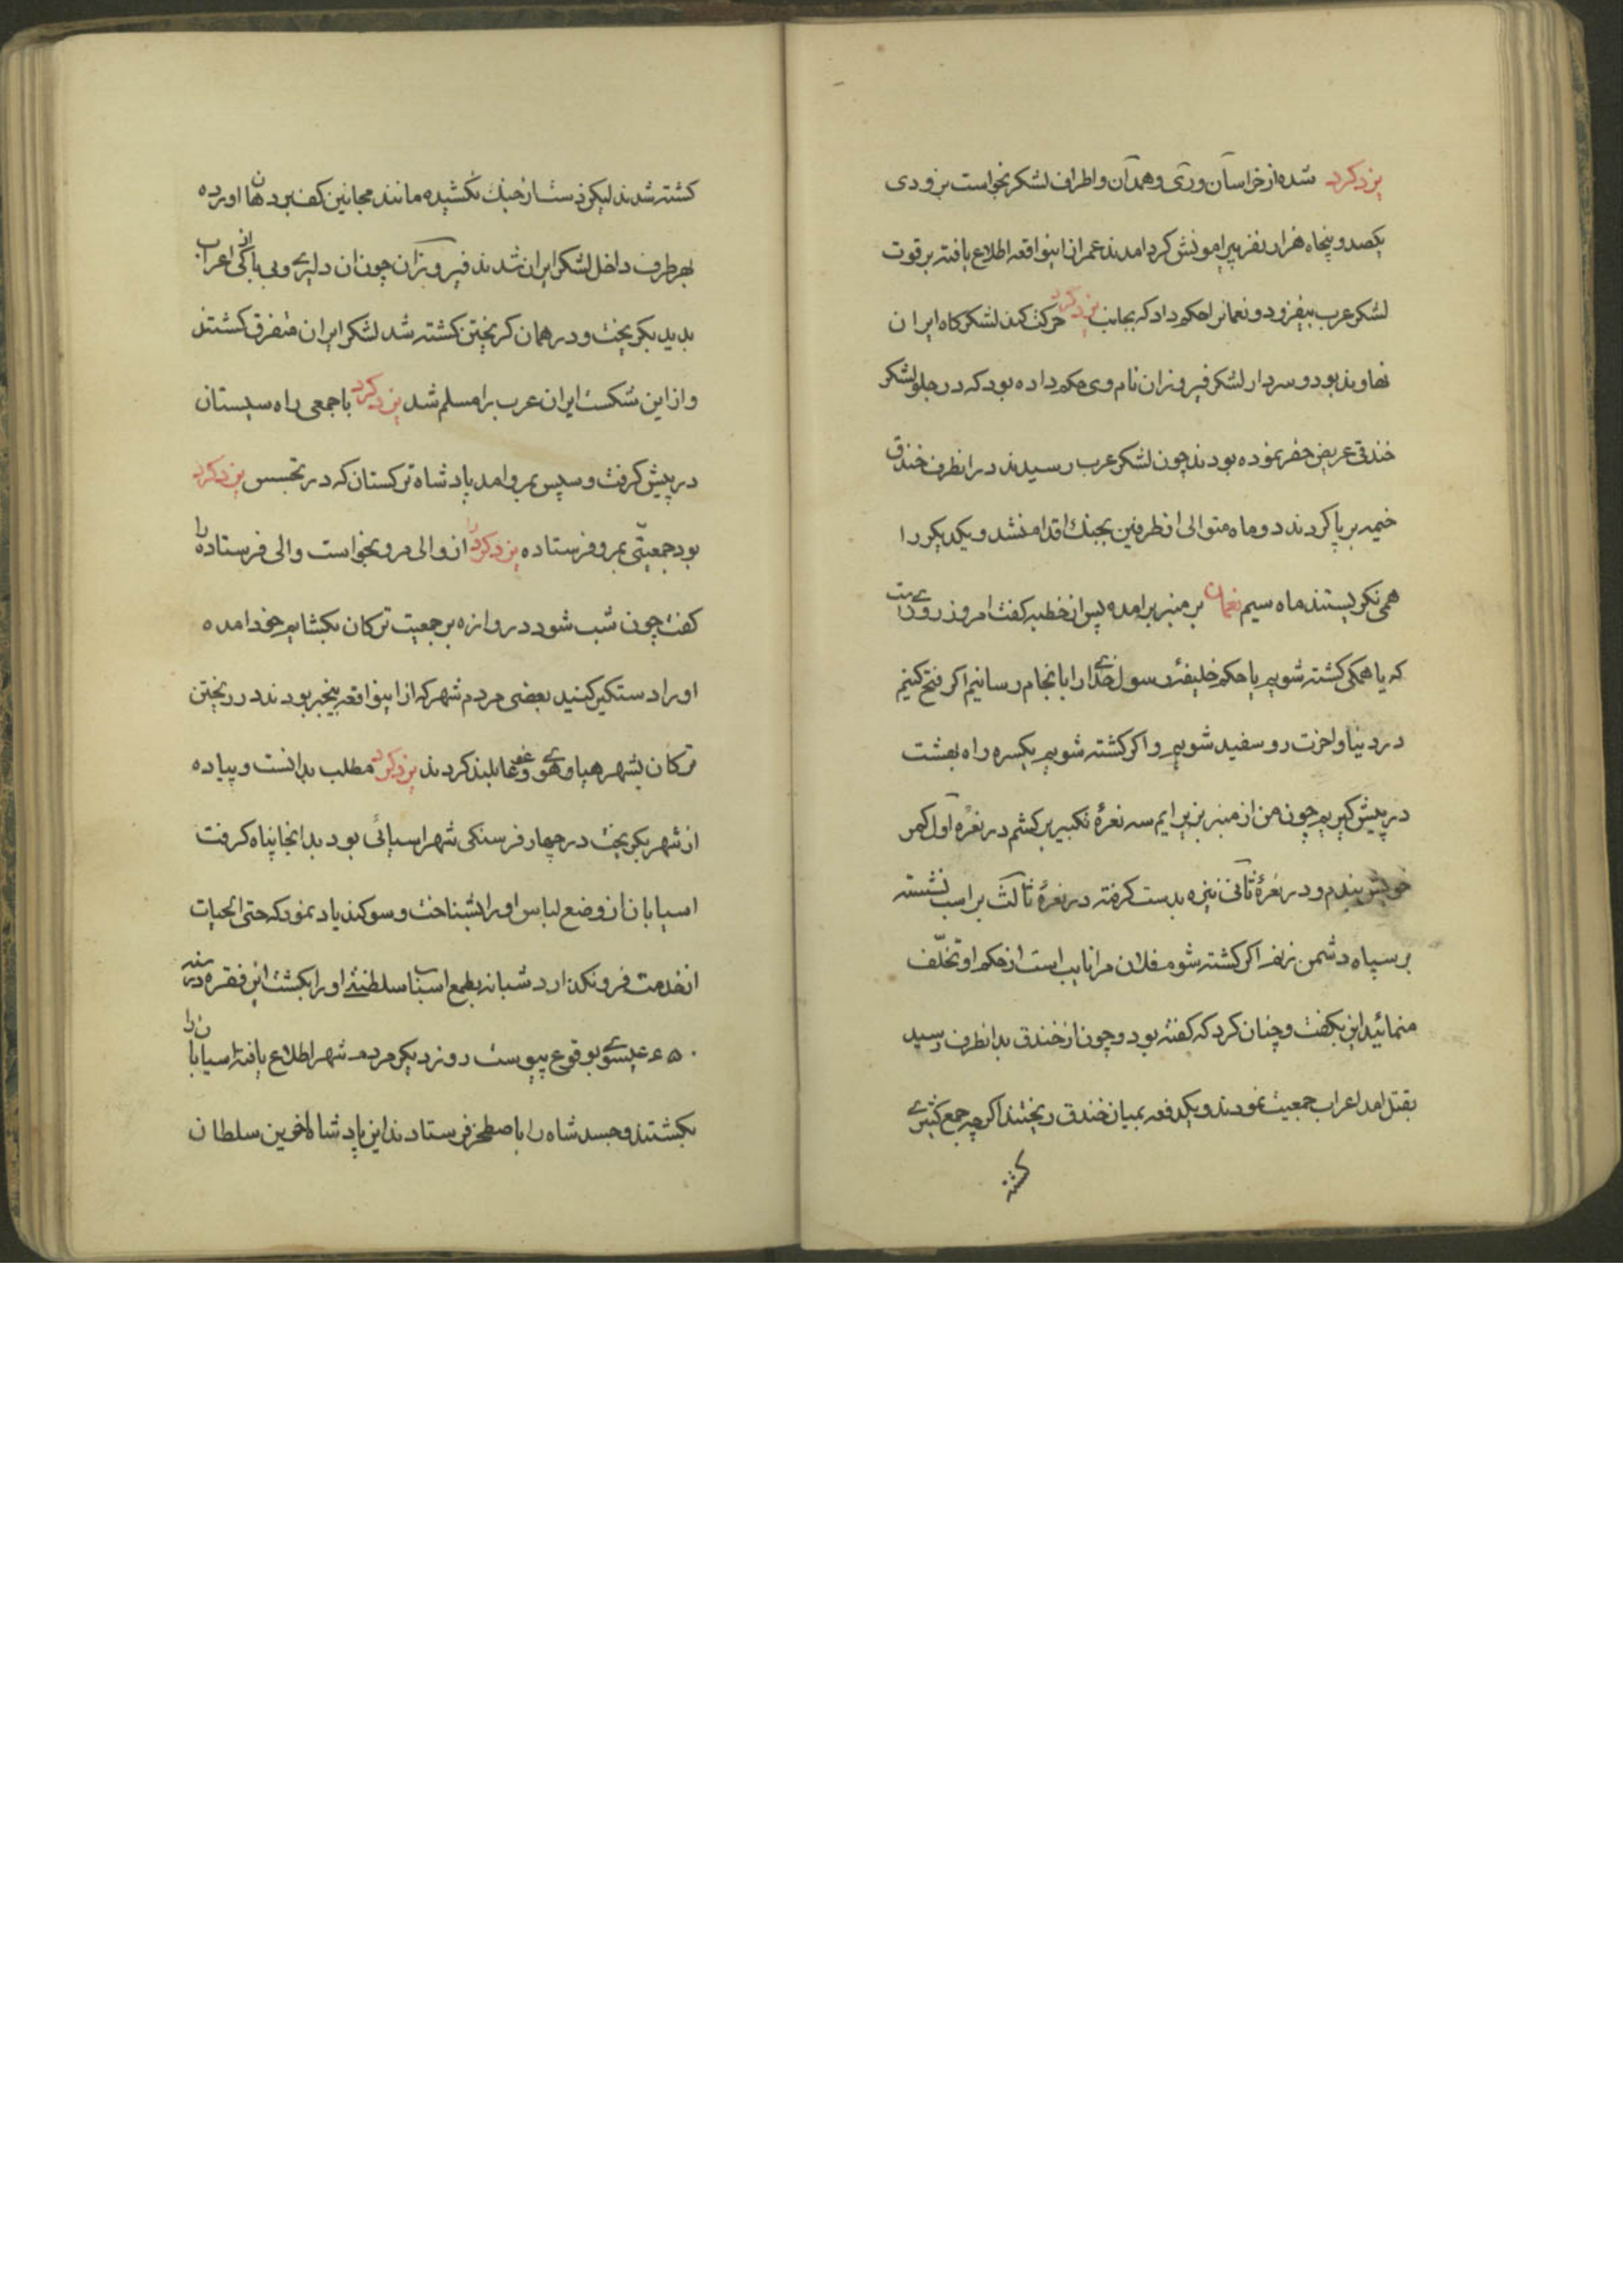 یزدکرد شده از خراسان و ری و همدان و اطراف لشکر بخواست بزودی
یکصد و پنجاه هزار نفر پیرامونش کرد امدند عمر از اینواقعه اطلاع یافته بر قوت
لشکر عرب بیفزود و نعمانرا حکم داد که بجانب یزدکرد حرکت کند لشکرکاه ایران
نهاوند بود و سردار لشکر فیروزان نام وی حکم داده بود که در جلو لشکر
خندقی عریض حفر نموده بودند چون لشکر عرب رسیدند در انطرف خندق
خیمه بر پا کردند دو ماه متوالی از طرفین بجنك اقدام نشد و یکدیکر را
همی نکریستند ماه سیم نعمان بر منبر برامده پس از خطبه کفت امروز روزیست
که یا همکی کشته شویم یا حکم خلیفهٔ رسول خدایرا بانجام رسانیم اکر فتح کنیم
در دنیا و اخرت رو سفید شویم و اکر کشته شویم یکسره راه بهشت
در پیش کیریم چون من از منبر بزیر ایم سه نعرهٔ تکبیر بر کشم در نعرهٔ اول کمر
خویش بندم و در نعرهٔ ثانی نیزه بدست کرفته در نعرهٔ ثالث بر اسب نشسته
بر سپاه دشمن زنم اکر کشته شوم فلان مرا نایب است از حکم او تخلّف
منمائید این بکفت و چنان کرد که کفته بود و چون از خندق بدانطرف رسید
بقتل امد اعراب جمعیت نمودند و یکدفعه بمیان خندق ریختند اکرچه جمع کثیری
کشته
کشته شدند لیکن دست از جنك نکشیده مانند مجانین کف بر دهان اورده
بهر طرف داخل لشکر ایران شدند فیروزان چون ان دلیری و بی باکی از اعراب
بدید بکریخت و در همان کریختن کشته شد لشکر ایران متفرق کشتند
و از این شکست ایران عرب را مسلم شد یزدکرد با جمعی راه سیستان
در پیش کرفت و سپس بمرو امد پادشاه ترکستان که در تجسس یزدکرد
بود جمعیّتی بمرو فرستاده یزدکرد را از والی مرو بخواست والی فرستاده را
کفت چون شب شود دروازه بر جمعیت ترکان بکشایم خود امده
او را دستکیر کنید بعضی مردم شهر که از اینواقعه بیخبر بودند در ریختن
ترکان بشهر هیاهوی و غوغا بلند کردند یزدکرد مطلب بدانست و پیاده
از شهر بکریخت در چهار فرسنکی شهر اسیائی بود بدانجا پناه کرفت
اسیابان از وضع لباس او را بشناخت و سوکند یاد نمود که حتی الحیات
از خدمت فرو نکذارد شبانه بطمع اسباب سلطنتی او را بکشت این فقره در سنه
۶۴۵ عیسوی بوقوع پیوست روز دیکر مردم شهر اطلاع یافته اسیابان را
بکشتند و جسد شاه را باصطخر فرستادند این پادشاه اخرین سلطان